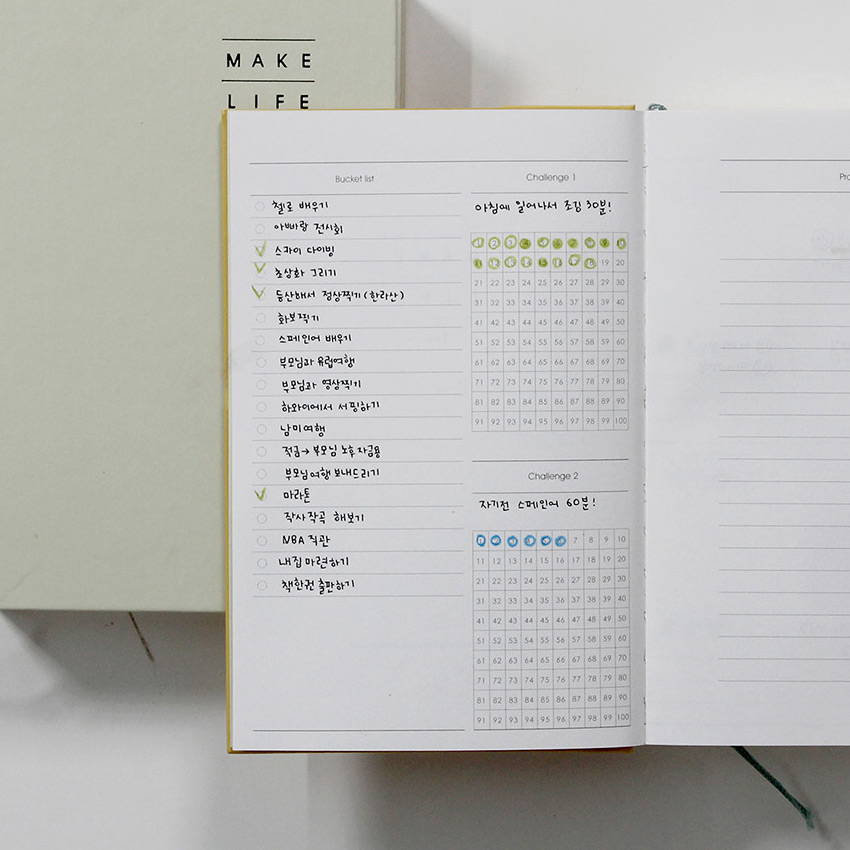 MAKE
LIFE
Bucket list
첼로 배우기
아빠랑 전시회
스카이 다이빙
초상화 그리기
등산해서 정상찍기 (한라산)
화보찍기
스페인어 배우기
부모님과 유럽여행
부모님과 영상찍기
하와이에서 서핑하기
남미여행
적금→부모님 노후자금용
부모님여행 보내드리기
마라톤
작사작곡 해보기
NBA 직관
내집마련하기
책한권 출판하기
Challenge 1
아침에 일어나서 조깅 30분!
1 2 3 4 5 6 7 8 9 10
11 12 13 14 15 16 17 18 19 20
21 22 23 24 25 26 27 28 29 30
31 32 33 34 35 36 37 38 39 40
41 42 43 44 45 46 47 48 49 50
51 52 53 54 55 56 57 58 59 60
61 62 63 64 65 66 67 68 69 70
71 72 73 74 75 76 77 78 79 80
81 82 83 84 85 86 87 88 89 90
91 92 93 94 95 96 97 98 99 100
Challenge 2
자기전 스페인어 60분!
1 2 3 4 5 6 7 8 9 10
11 12 13 14 15 16 17 18 19 20
21 22 23 24 25 26 27 28 29 30
31 32 33 34 35 36 37 38 39 40
41 42 43 44 45 46 47 48 49 50
51 52 53 54 55 56 57 58 59 60
61 62 63 64 65 66 67 68 69 70
71 72 73 74 75 76 77 78 79 80
81 82 83 84 85 86 87 88 89 90
91 92 93 94 95 96 97 98 99 100